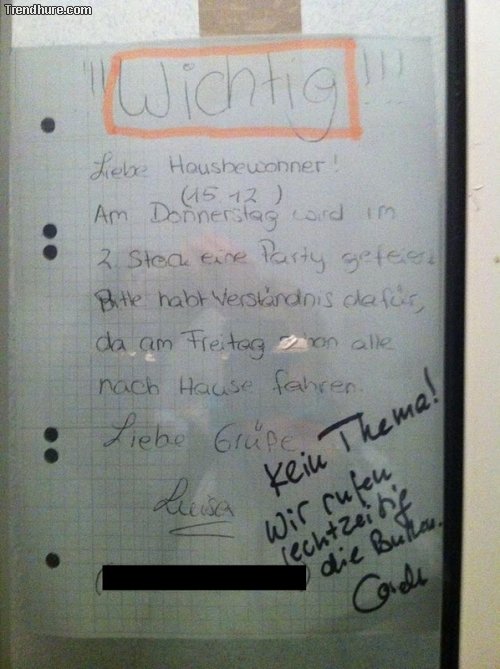 Trendhure.com
!!! Wichtig !!!
Liebe Hausbewohner!
(15.12)
Am Donnerstag wird im
2. Stock eine Party gefeiert
Bitte habt Verständnis dafür,
da am Freitag schon alle
nach Hause fahren.
Liebe Grüße
Luisa
Kein Thema!
Wir rufen
rechtzeitig
die Bullen.